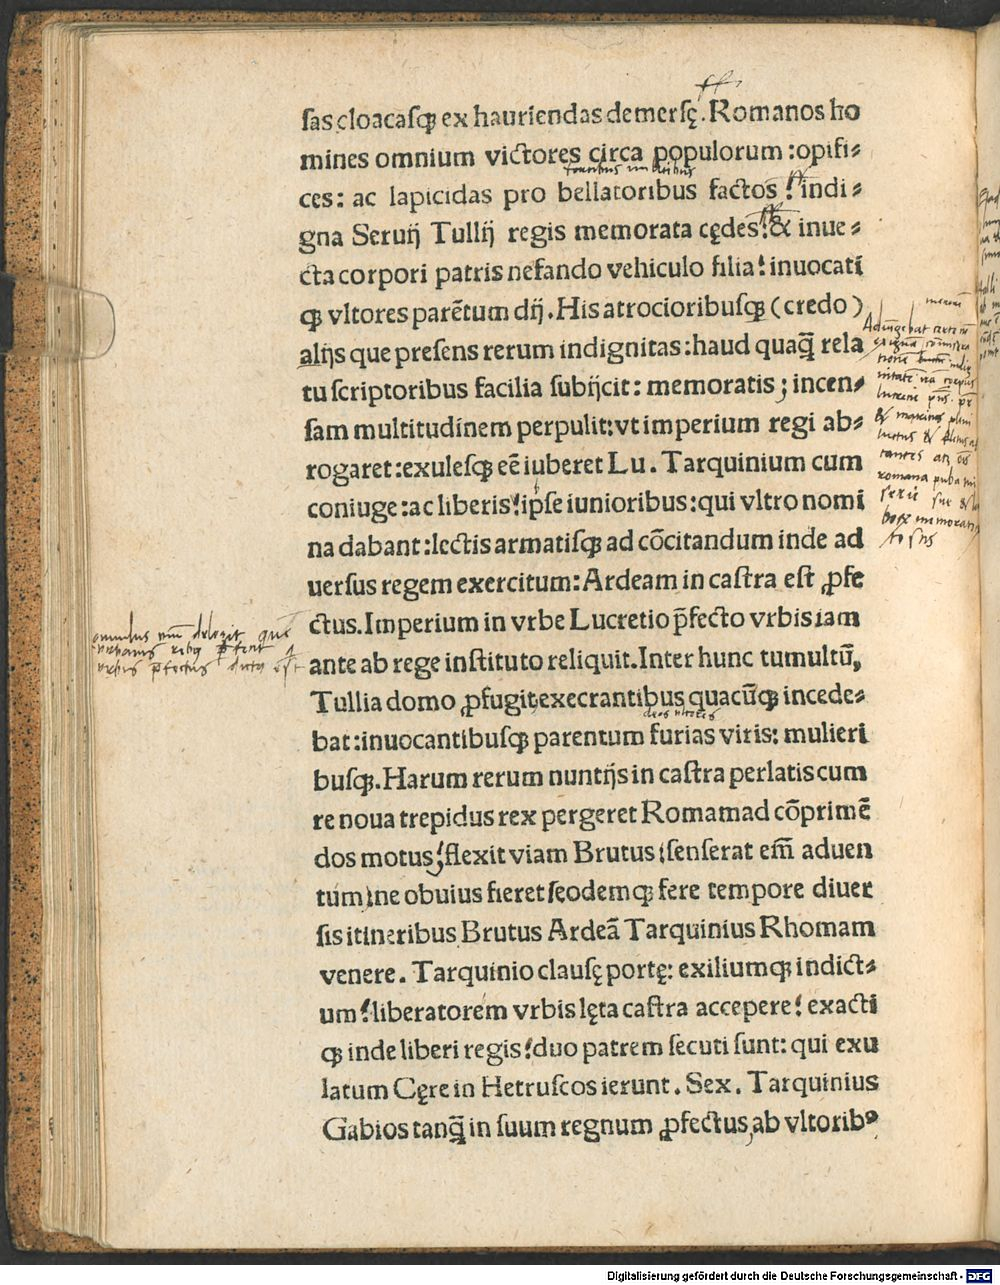 ſas cloacaſqꝫ ex hauriendas demerſę. Romanos ho
mines omnium victores circa populorum: opifi-
ces: ac lapicidas pro bellatoribus factos! indi-
gna Seruij Tullij regis memorata cędes: & inue-
cta corpori patris nefando vehiculo filia! inuocati
qꝫ vltores parẽtum dij. His atrocioribuſqꝫ (credo)
alijs que preſens rerum indignitas: haud quaq̃ rela
tu ſcriptoribus facilia ſubijcit: memoratis; incen-
ſam multitudinem perpulit: vt imperium regi ab-
rogaret: exuleſqꝫ eẽ iuberet Lu. Tarquinium cum
coniuge: ac liberis! ipſe iunioribus: qui vltro nomi
na dabant: lectis armatiſqꝫ ad cõcitandum inde ad
uerſus regem exercitum: Ardeam in caſtra eſt ꝓfe
ctus. Imperium in vrbe Lucretio p̃fecto vrbis iam
ante ab rege inſtituto reliquit. Inter hunc tumultũ,
Tullia domo ꝓfugit, execrantibus quacũqꝫ incede-
bat: inuocantibuſqꝫ parentum furias viris: mulieri
deos ultores
buſqꝫ. Harum rerum nuntijs in caſtra perlatis cum
re noua trepidus rex pergeret Romam ad cõprimẽ
dos motus, flexit viam Brutus (ſenſerat em̃ aduen
tum) ne obuius fieret, ſeodemqꝫ fere tempore diuer
ſis itineribus Brutus Ardeã Tarquinius Rhomam
venere. Tarquinio clauſę portę: exiliumqꝫ indict-
um! liberatorem vrbis lęta caſtra accepere! exacti
qꝫ inde liberi regis! duo patrem ſecuti ſunt: qui exu
latum Cęre in Hetruſcos ierunt. Sex. Tarquinius
Gabios tanq̃ in ſuum regnum ꝓfectus, ab vltoribꝰ
delegit quẽ
vrbis p̃fectus dictus est
Digitalisierung gefördert durch die Deutsche Forschungsgemeinschaft - DFG